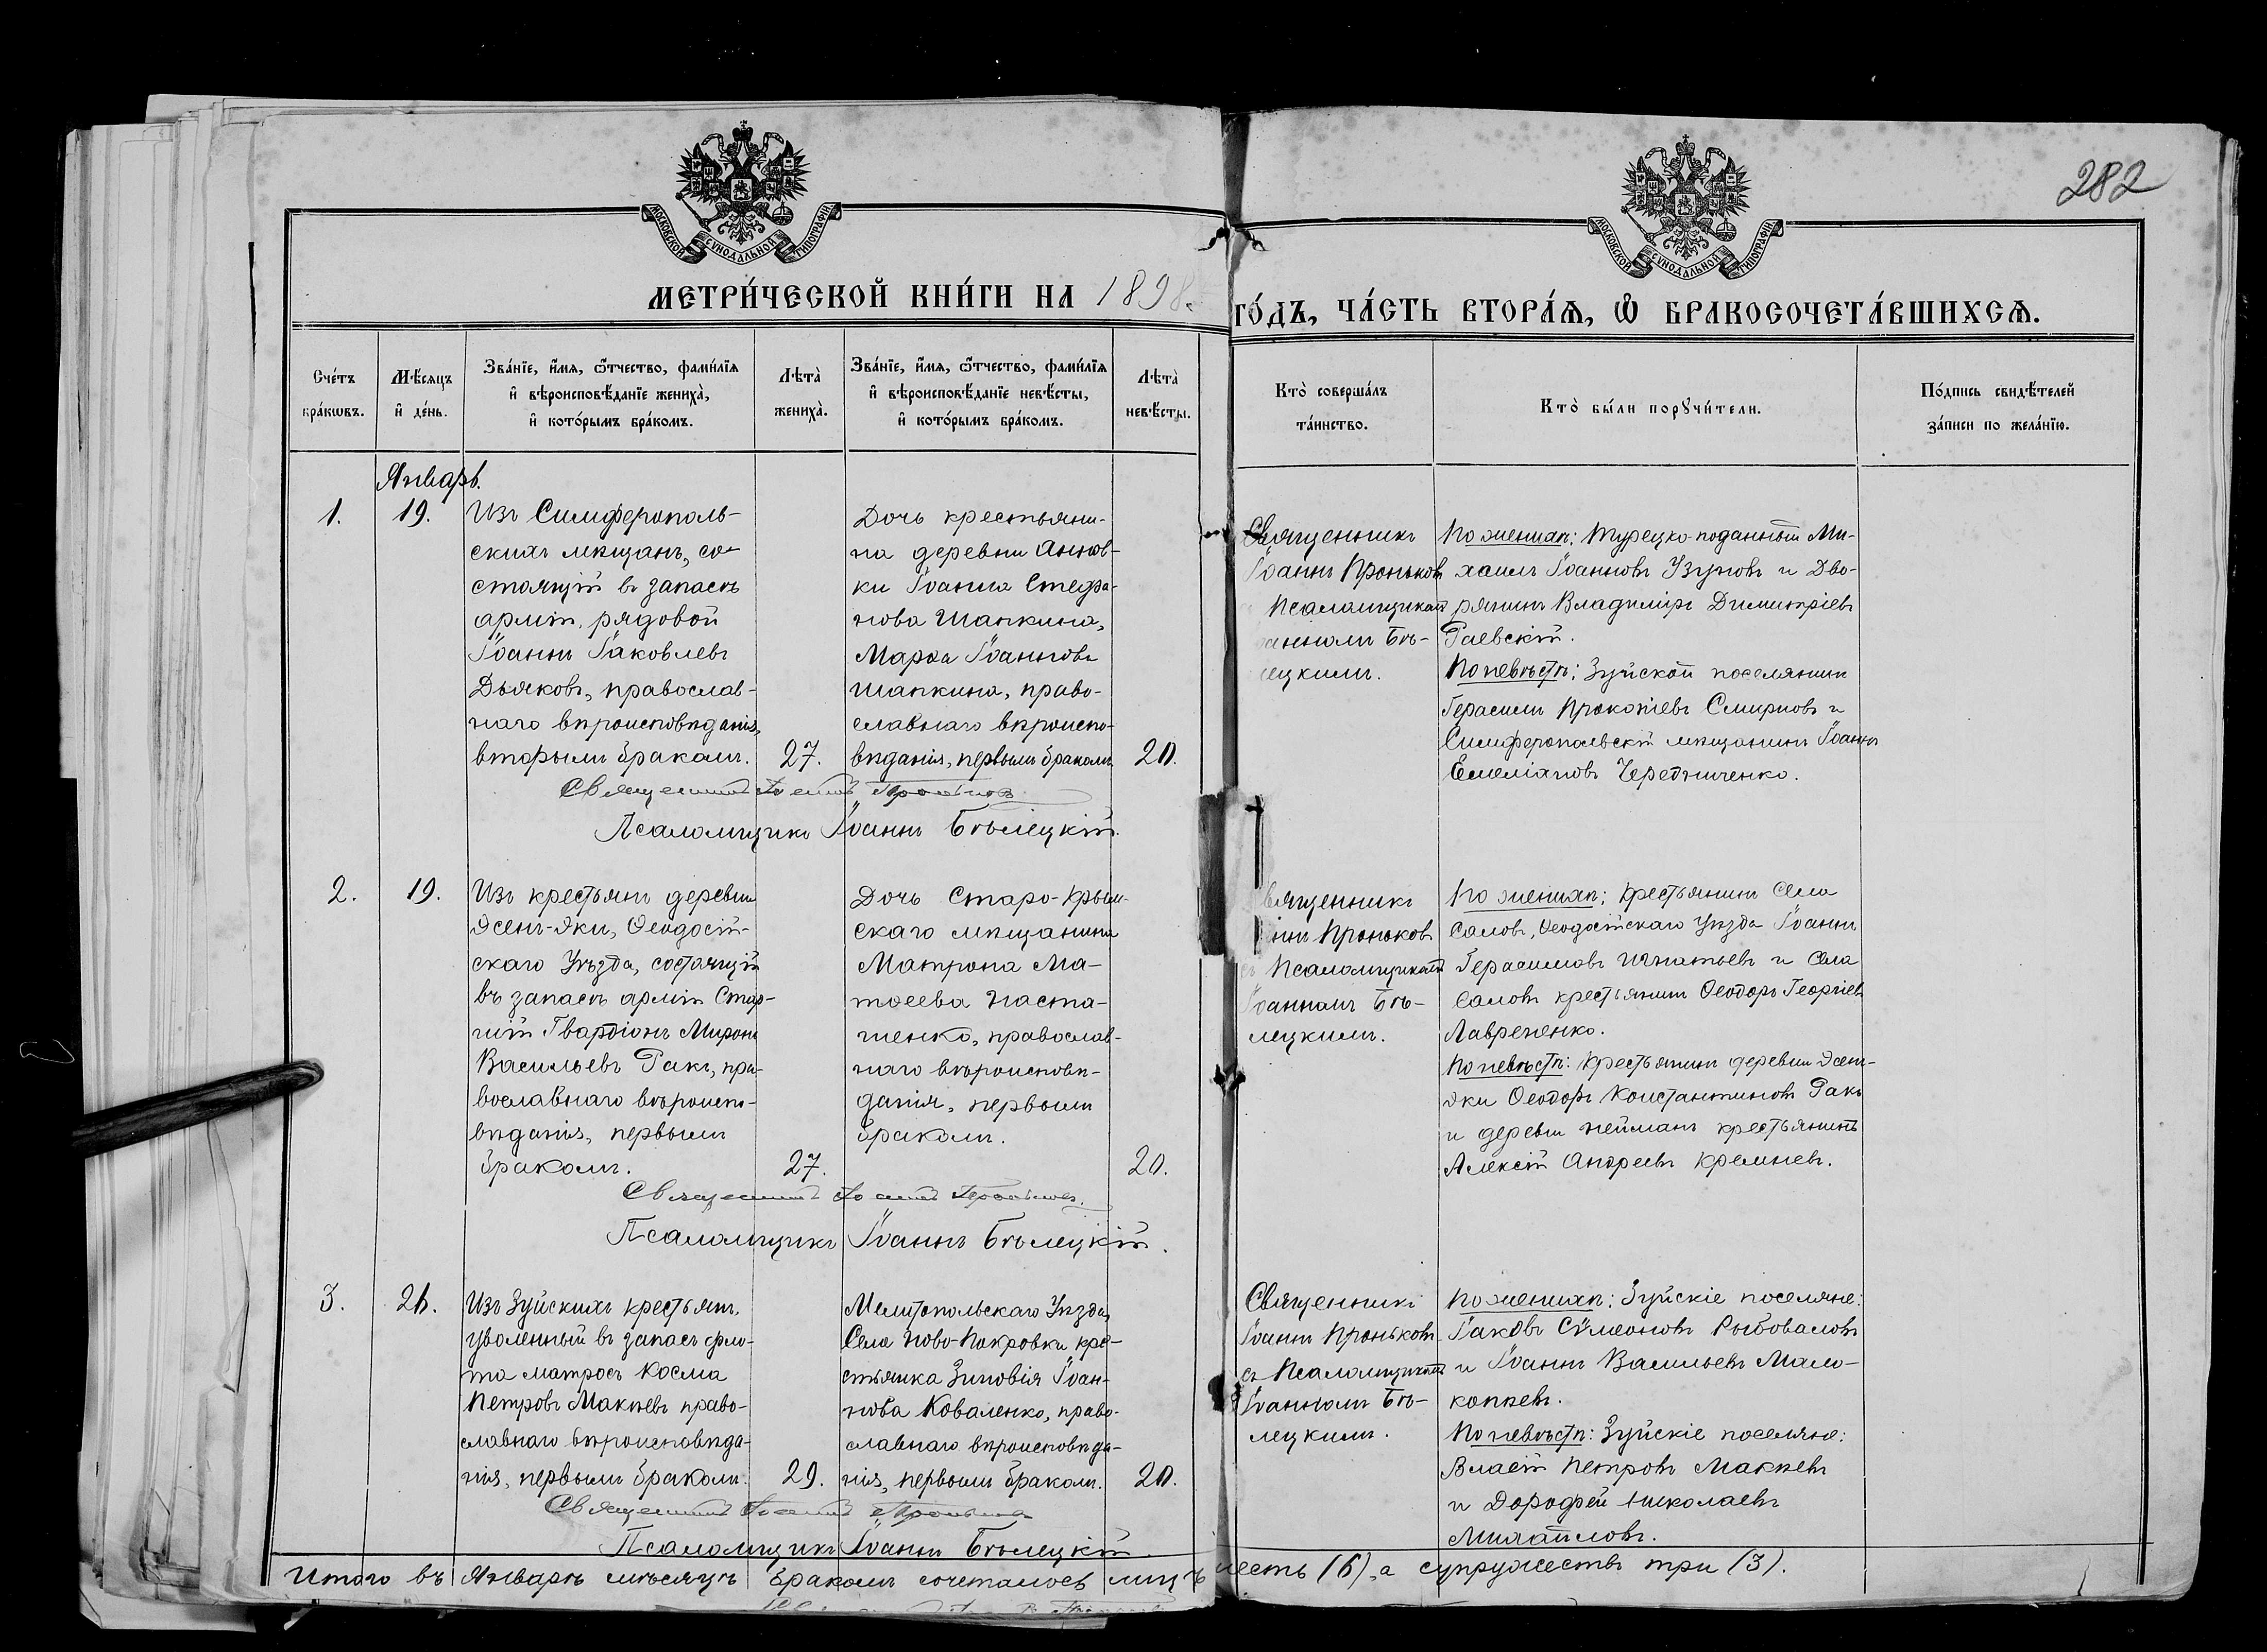 282
МОСКОВСКОЙ СУНОДАЛЬНОЙ ТИПОГРАФІИ
МОСКОВСКОЙ СУНОДАЛЬНОЙ ТИПОГРАФІИ
МЕТРИ́ЧЕСКОЙ КНИ́ГИ НА 1898.
ГО́ДЪ, ЧА́СТЬ ВТОРА́Я, Ѽ БРАКОСОЧЕТА́ВШИХСЯ.
Сче́тъ
бра́кѡвъ.
Мѣ́сяцъ
и҆ де́нь.
Зва́нїе, и҆́мя, ѻ҆́тчество, фами́лїя
и҆ вѣроисповѣ́данїе жениха̀,
и҆ кото́рымъ бра́комъ.
Лѣта̀
жениха̀.
Зва́нїе, и҆́мя, ѻ҆́тчество, фами́лїя
и҆ вѣроисповѣ́данїе невѣ́сты,
и҆ кото́рымъ бра́комъ.
Лѣта̀
невѣ́сты.
Кто̀ соверша́лъ
та́инство.
Кто̀ бы́ли порꙋчи́тели.
По́дпись свидѣ́телей
за́писи по жела́нїю.
Январь.
1.
19.
Изъ Симферополь-
скихъ мѣщанъ, со-
стоящій въ запасѣ
арміи, рядовой
Іоаннъ Іаковлевъ
Дьяковъ, православ-
наго вѣроисповѣданія,
вторымъ бракомъ.
27.
Дочь крестьяни-
на деревни Аннов-
ки Іоанна Стефа-
нова Шапкина,
Марѳа Іоаннова
Шапкина, право-
славнаго вѣроиспо-
вѣданія, первымъ бракомъ.
20.
Священникъ
Іоаннъ Проньковъ
Псаломщикомъ
Іоанномъ Бѣ-
лецкимъ.
По женихѣ: Турецко-поданный Ми-
хаилъ Іоанновъ Узуновъ и Дво-
рянинъ Владиміръ Димитріевъ
Раевскій.
По невѣстѣ: Зуйской поселянинъ
Герасимъ Прокопіевъ Смирновъ и
Симферопольскій мѣщанинъ Іоаннъ
Емеліановъ Чередниченко.
Священникъ Іоаннъ Проньковъ
Псаломщикъ Іоаннъ Бѣлецкій.
2.
19.
Изъ крестьянъ деревни
Ясенъ-Яки, Ѳеодосій-
скаго Уѣзда, состоящій
въ запасѣ арміи Стар-
шій Гвардіонъ Миронъ
Васильевъ Ракъ, пра-
вославнаго вѣроиспо-
вѣданія, первымъ
бракомъ.
27.
Дочь Старо-Крым-
скаго мѣщанина
Матрона Ма-
тѳеева Наста-
ченко, православ-
наго вѣроисповѣ-
данія, первымъ
бракомъ.
20.
Священникъ
Іоаннъ Проньковъ
съ Псаломщикомъ
Іоанномъ Бѣ-
лецкимъ.
По женихѣ: Крестьянинъ Села
Саловъ, Ѳеодосійскаго Уѣзда Іоаннъ
Герасимовъ Игнатьевъ и Села
Саловъ крестьянинъ Ѳеодоръ Георгіевъ
Лавриненко.
По невѣстѣ: Крестьянинъ деревни Ясенъ-
Яки Ѳеодоръ Константиновъ Ракъ
и деревни Нейманъ крестьянинъ
Алексій Андреевъ Кремневъ.
Священникъ Іоаннъ Проньковъ
Псаломщикъ Іоаннъ Бѣлецкій.
3.
Изъ Зуйскихъ крестьянъ,
уволенный въ запасъ фло-
та матросъ Косма
Петровъ Макѣевъ право-
славнаго вѣроисповѣда-
нія, первымъ бракомъ.
29.
Мелитопольскаго Уѣзда,
Села Ново-Покровки кре-
стьянка Зиновія Іоан-
нова Коваленко, право-
славнаго вѣроисповѣда-
нія, первымъ бракомъ.
20.
Священникъ
Іоаннъ Проньковъ
съ Псаломщикомъ
Іоанномъ Бѣ-
лецкимъ.
По женихѣ: Зуйскіе поселяне:
Іаковъ Сѵмеоновъ Рыбоваловъ
и Іоаннъ Васильевъ Мало-
копѣевъ.
По невѣстѣ: Зуйскіе поселяне:
Власій Петровъ Макѣевъ
и Дорофей Николаевъ
Михайловъ.
Священникъ Іоаннъ Проньковъ
Псаломщикъ Іоаннъ Бѣлецкій.
Итого въ Январѣ мѣсяцѣ бракомъ сочеталось лицъ шесть (6), а супружествъ три (3).